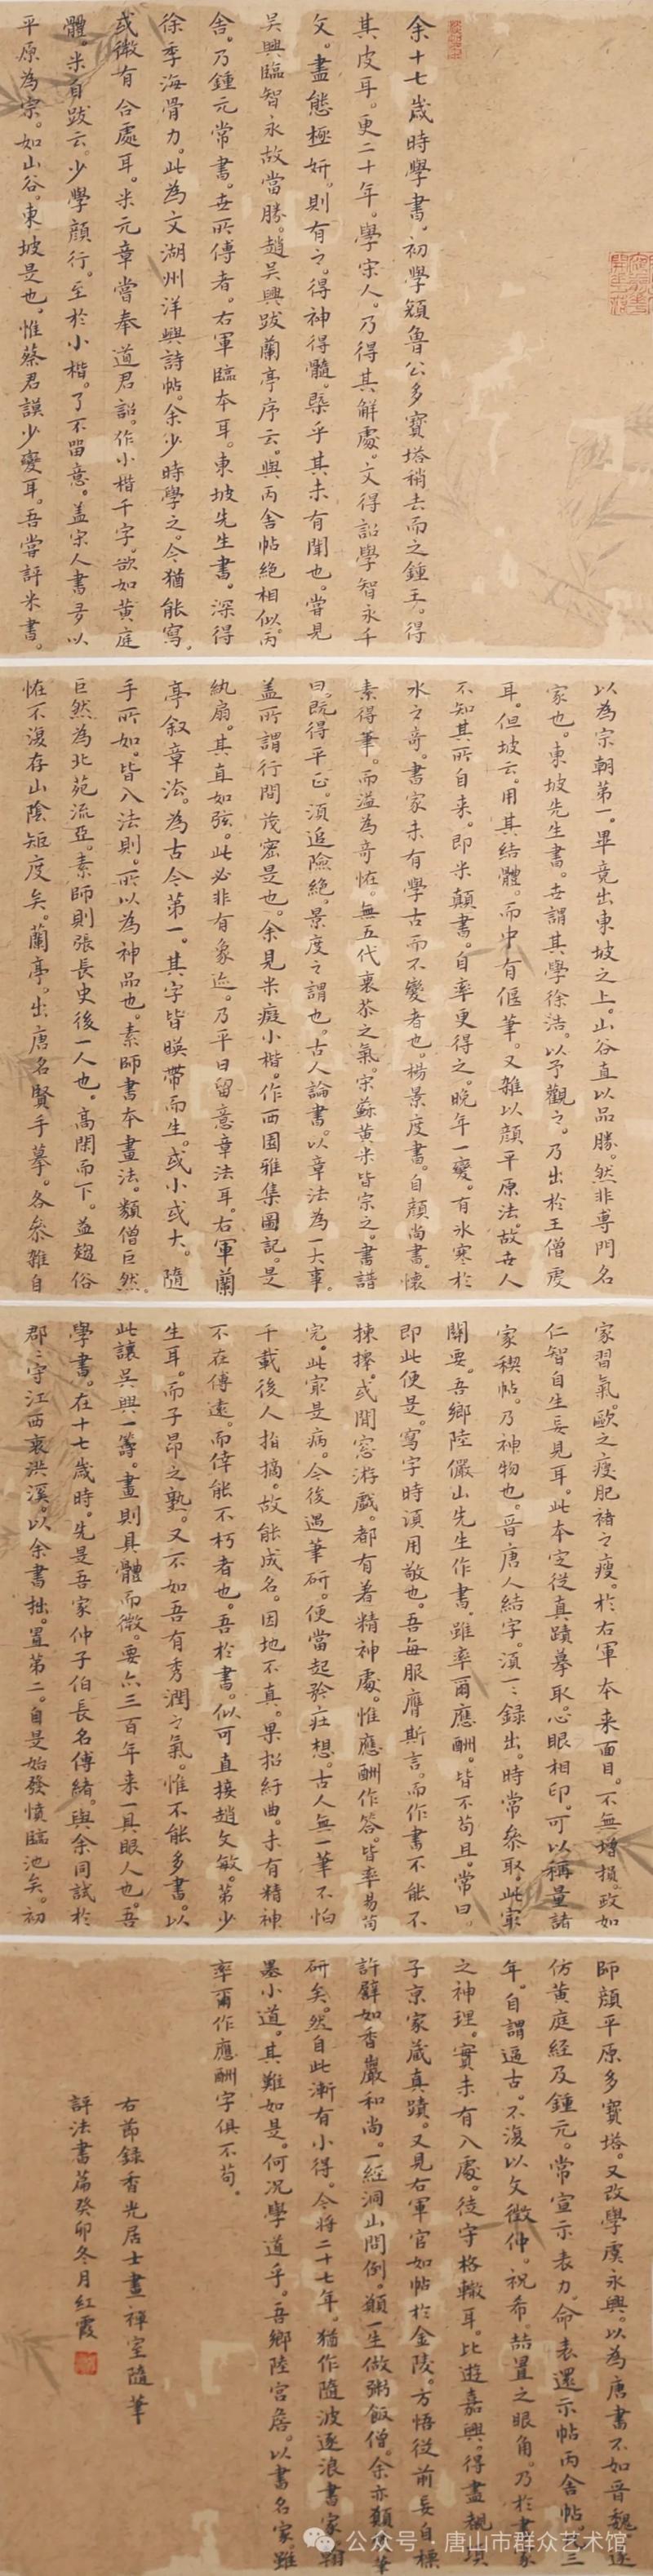 余十七歲時學書。初學顏魯公多寶塔稍去而之鍾王。得
其皮耳。更二十年。學宋人。乃得其解處。文得詔學智永千
文。盡態極妍。則有之。得神得髓。槩乎其未有聞也。嘗見
吳興臨智永故當勝。趙吳興跋蘭亭序云。與丙舍帖絕相似。丙
舍。乃鍾元常書。世所傳者。右軍臨本耳。東坡先生書。深得
徐季海骨力。此為文湖州洋興詩帖。余少時學之。今猶能寫。
或微有合處耳。米元章嘗奉道君詔。作小楷千字。欲如黃庭
體。米自跋云。少學顏行。至於小楷。了不留意。蓋宋人書多以
平原為宗。如山谷。東坡是也。惟蔡君謨少變耳。吾嘗評米書。
以為宗朝第一。畢竟出東坡之上。山谷直以品勝。然非專門名
家也。東坡先生書。世謂其學徐浩。以予觀之。乃出於王僧虔
耳。但坡云。用其結體。而中有偃筆。又雜以顏平原法。故世人
不知其所自來。即米顛書。自率更得之。晚年一變。有冰寒於
水之奇。書家未有學古而不變者也。楊景度書。自顏尚書。懷
素得筆。而溢為奇怪。無五代衰苶之氣。宋蘇黃米皆宗之。書譜
曰。既得平正。須追險絕。景度之謂也。古人論書。以章法為一大事。
蓋所謂行間茂密是也。余見米癡小楷。作西園雅集圖記。是
紈扇。其直如弦。此必非有象迹。乃平日留意章法耳。右軍蘭
亭叙章法。為古今第一。其字皆映帶而生。或小或大。隨
手所如。皆入法則。所以為神品也。素師書本畫法。類僧巨然。
巨然為北苑流亞。素師則張長史後一人也。高閑而下。益趨俗
怪不復存山陰矩度矣。蘭亭。出唐名賢手摹。各參雜自
家習氣。歐之瘦肥褚之瘦。於右軍本來面目。不無增損。致如
仁智自生妄見耳。此本定從真蹟摹取。心眼相印。可以稱量諸
家稧帖。乃神物也。晉唐人結字。須一一錄出。時常參取。此寔
關要。吾鄉陸儼山先生作書。雖率爾應酬。皆不苟且。常曰。
即此便是。寫字時須用敬也。吾每服膺斯言。而作書不能不
揀擇。或閒窓游戲。都有着精神處。惟應酬作答。皆率易苟
完。此寔是病。今後遇筆研。便當起矜莊想。古人無一筆不怕
千載後人指摘。故能成名。因地不真。果招紆曲。未有精神
不在傳遠。而倖能不朽者也。吾於書。似可直接趙文敏。第少
生耳。而子昂之熟。又不如吾有秀潤之氣。惟不能多書。以
此讓吳興一籌。畫則具體而微。要亦三百年來一具眼人也。吾
學書。在十七歲時。先是吾家仲子伯長名傳緒。與余同試於
郡。郡守江西衷洪溪。以余書拙。置第二。自是始發憤臨池矣。初
師顏平原多寶塔。又改學虞永興。以為唐書不如晉魏。遂
仿黃庭經及鍾元。常宣示表力。命表還示帖丙舍帖。凡三
年。自謂逼古。不復以文徵仲。祝希。喆置之眼角。乃於書家
之神理。實未有入處。徒守格轍耳。比遊嘉興。得盡覩項
子京家藏真蹟。又見右軍官奴帖於金陵。方悟從前妄自標
許。譬如香巖和尚。一經洞山問倒。願一生做粥飯僧。余亦願焚筆
研矣。然自此漸有小得。今將二十七年。猶作隨波逐浪書家。翰
墨小道。其難如是。何況學道乎。吾鄉陸宮詹。以書名家。雖
率爾作應酬字俱不苟。
右節錄香光居士畫禪室隨筆
評法書篇癸卯冬月紅霞
公众号·唐山市群众艺术馆